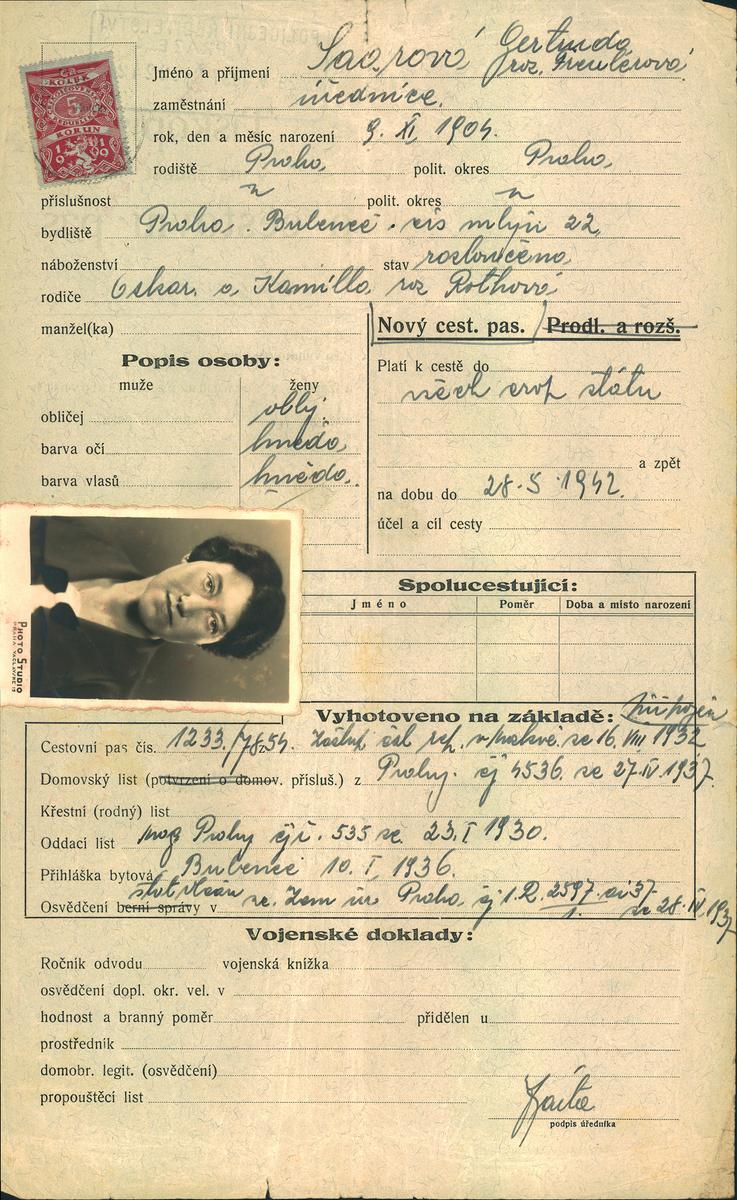 KOLEK
5
KORUN
19 19
Jméno a příjmení Saarová Gertruda
roz.
zaměstnání úřednice.
rok, den a měsíc narození 9. XI. 1904.
rodiště Praha, polit. okres Praha,
příslušnost " polit. okres "
bydliště Praha. Bubeneč. cís mlýn 22,
náboženství stav rozloučená
rodiče Oskar a Kamilla roz Rothová
manžel(ka) Nový cest. pas. Prodl. a rozš.
Popis osoby: Platí k cestě do
muže ženy všech evrop států
obličej oblý.
barva očí hnědá,
barva vlasů hnědá. a zpět
na dobu do 28.5.1942.
účel a cíl cesty
PHOTO STUDIO
Spolucestující:
Jméno Poměr Doba a místo narození
Vyhotoveno na základě: připojen
Cestovní pas čís. 1233./7854. čsl rep. v ze 16. VIII 1932
Domovský list (potvrzení o domov. přísluš.) z Prahy. čj 4536. ze 27.IV.1937.
Křestní (rodný) list
Oddací list mag Prahy čj. 535 ze 23. I 1930.
Přihláška bytová Bubeneč 10. I, 1936.
Osvědčení berní správy v ze. Zem úř Praha čj 1.R. 2597 ai 37 ze 28. IV. 1937
1.
Vojenské doklady:
Ročník odvodu vojenská knížka
osvědčení dopl. okr. vel. v
hodnost a branný poměr přidělen u
prostředník
domobr. legit. (osvědčení)
propouštěcí list
podpis úředníka